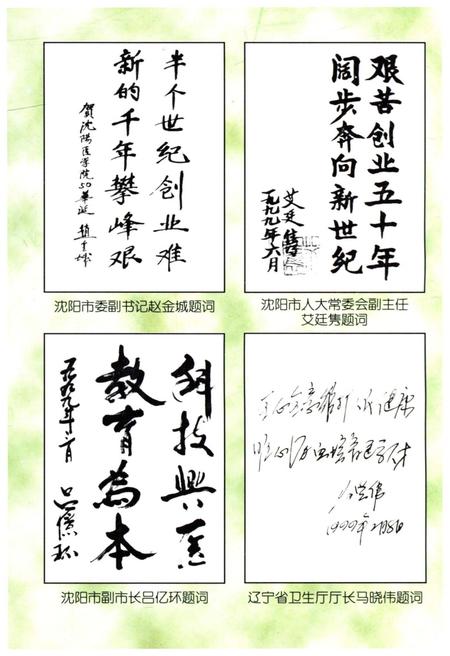 半个世纪创业难
新的千年攀峰艰
贺沈阳医学院50华诞
沈阳市委副书记赵金城题词
艰苦创业五十年
阔步奔向新世纪
艾廷隽
一九九九年六月
沈阳市人大常委会副主任
艾廷隽题词
科技兴医
教育为本
一九九九年
吕亿环
沈阳市副市长吕亿环题词
1999年2月8日
辽宁省卫生厅厅长马晓伟题词